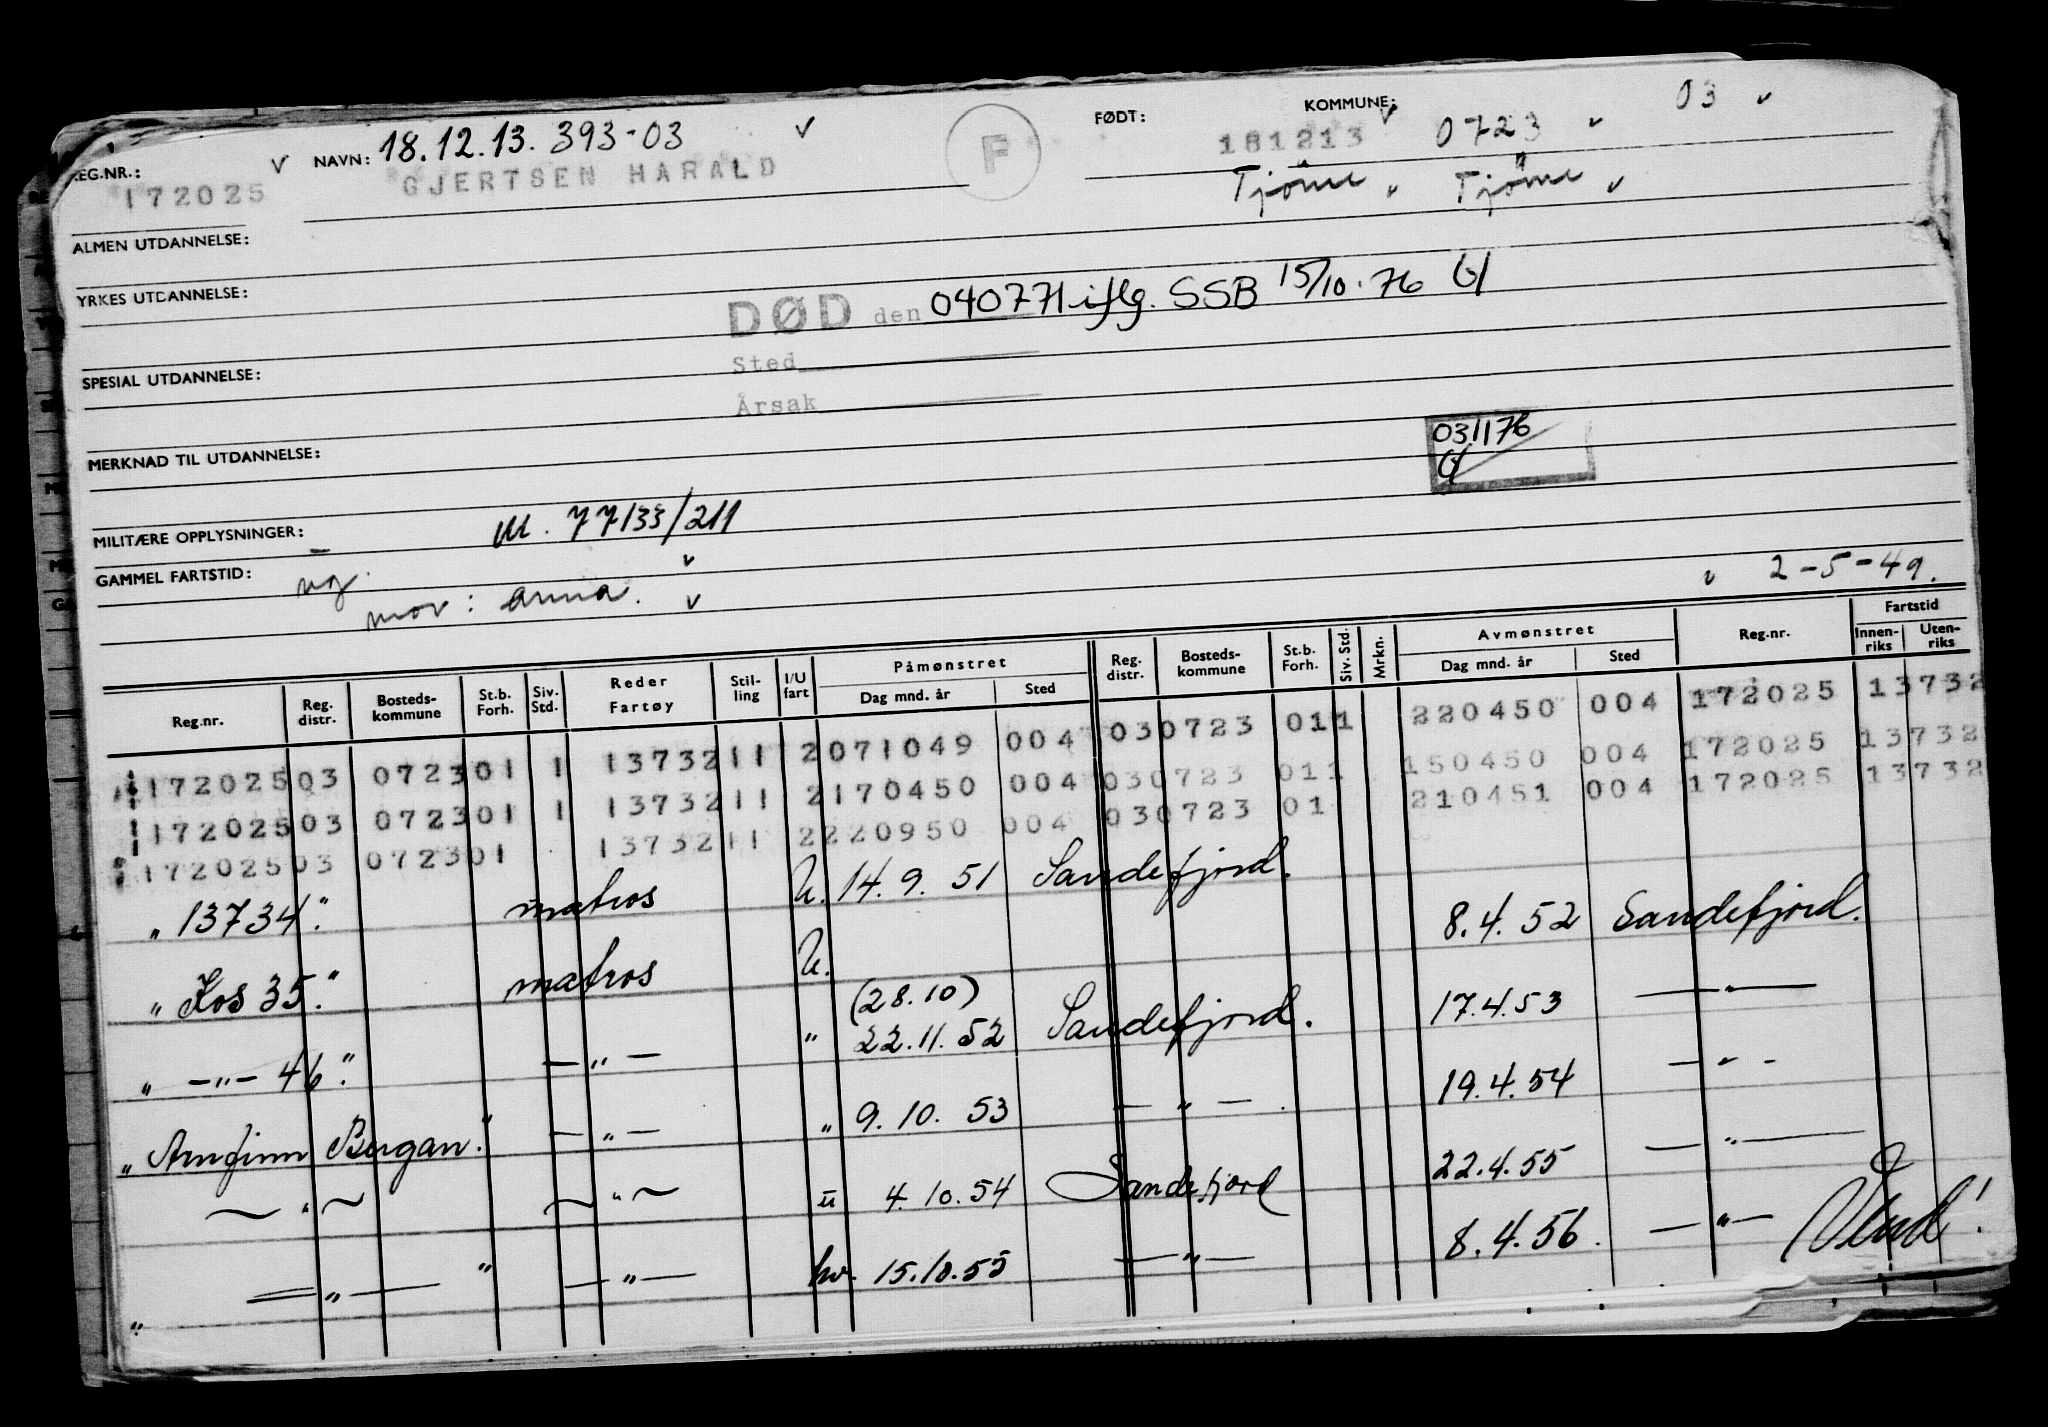 REG.NR.: 172025 v NAVN: 18.12.13. 393-03 v
GJERTSEN HARALD
F
FØDT: 181213 KOMMUNE: v 0723 v 03 v
Tjøme v Tjøme v
ALMEN UTDANNELSE:
YRKES UTDANNELSE:
DØD den 040771 iflg. SSB 15/10.76
Sted
SPESIAL UTDANNELSE:
Årsak
031176
MERKNAD TIL UTDANNELSE:
MILITÆRE OPPLYSNINGER: - M. 77133/211
GAMMEL FARTSTID: ug. v
mor: Anna. v
v 2-5-49.
Reg.nr. Reg. distr. Bosteds-kommune St.b. Forh. Siv. Std. Reder Fartøy Stil-ling I/U fart Påmønstret Dag mnd. år Sted Reg. distr. Bosteds-kommune St.b. Forh. Siv. Std. Mrkn. Avmønstret Dag mnd. år Sted Reg.nr. Fartstid Innen-riks Uten-riks
172025 03 0723 01 1 13732 11 2 071049 004 03 0723 01 1 220450 004 172025 13732
172025 03 0723 01 1 13732 11 2 170450 004 03 0723 01 1 150450 004 172025 13732
172025 03 0723 01 13732 11 2 220950 004 03 0723 01 210451 004 172025 13732
"13734." matros U. 14.9. 51 Sandefjord. 8.4. 52 Sandefjord.
"Kos 35." matros U. (28.10) 17.4.53 — " —
" —"— 46." — " — " 22.11.52 Sandefjord. 19.4.54 — " —
"Arnfinn Bergan." — " — " 9.10. 53 — " — . 22.4.55 — " —
~ " ~ ~ " ~ u 4.10.54 Sandefjord 8.4.56. — " —
" — " — " — " — hv. 15.10.55 — " — Vend!